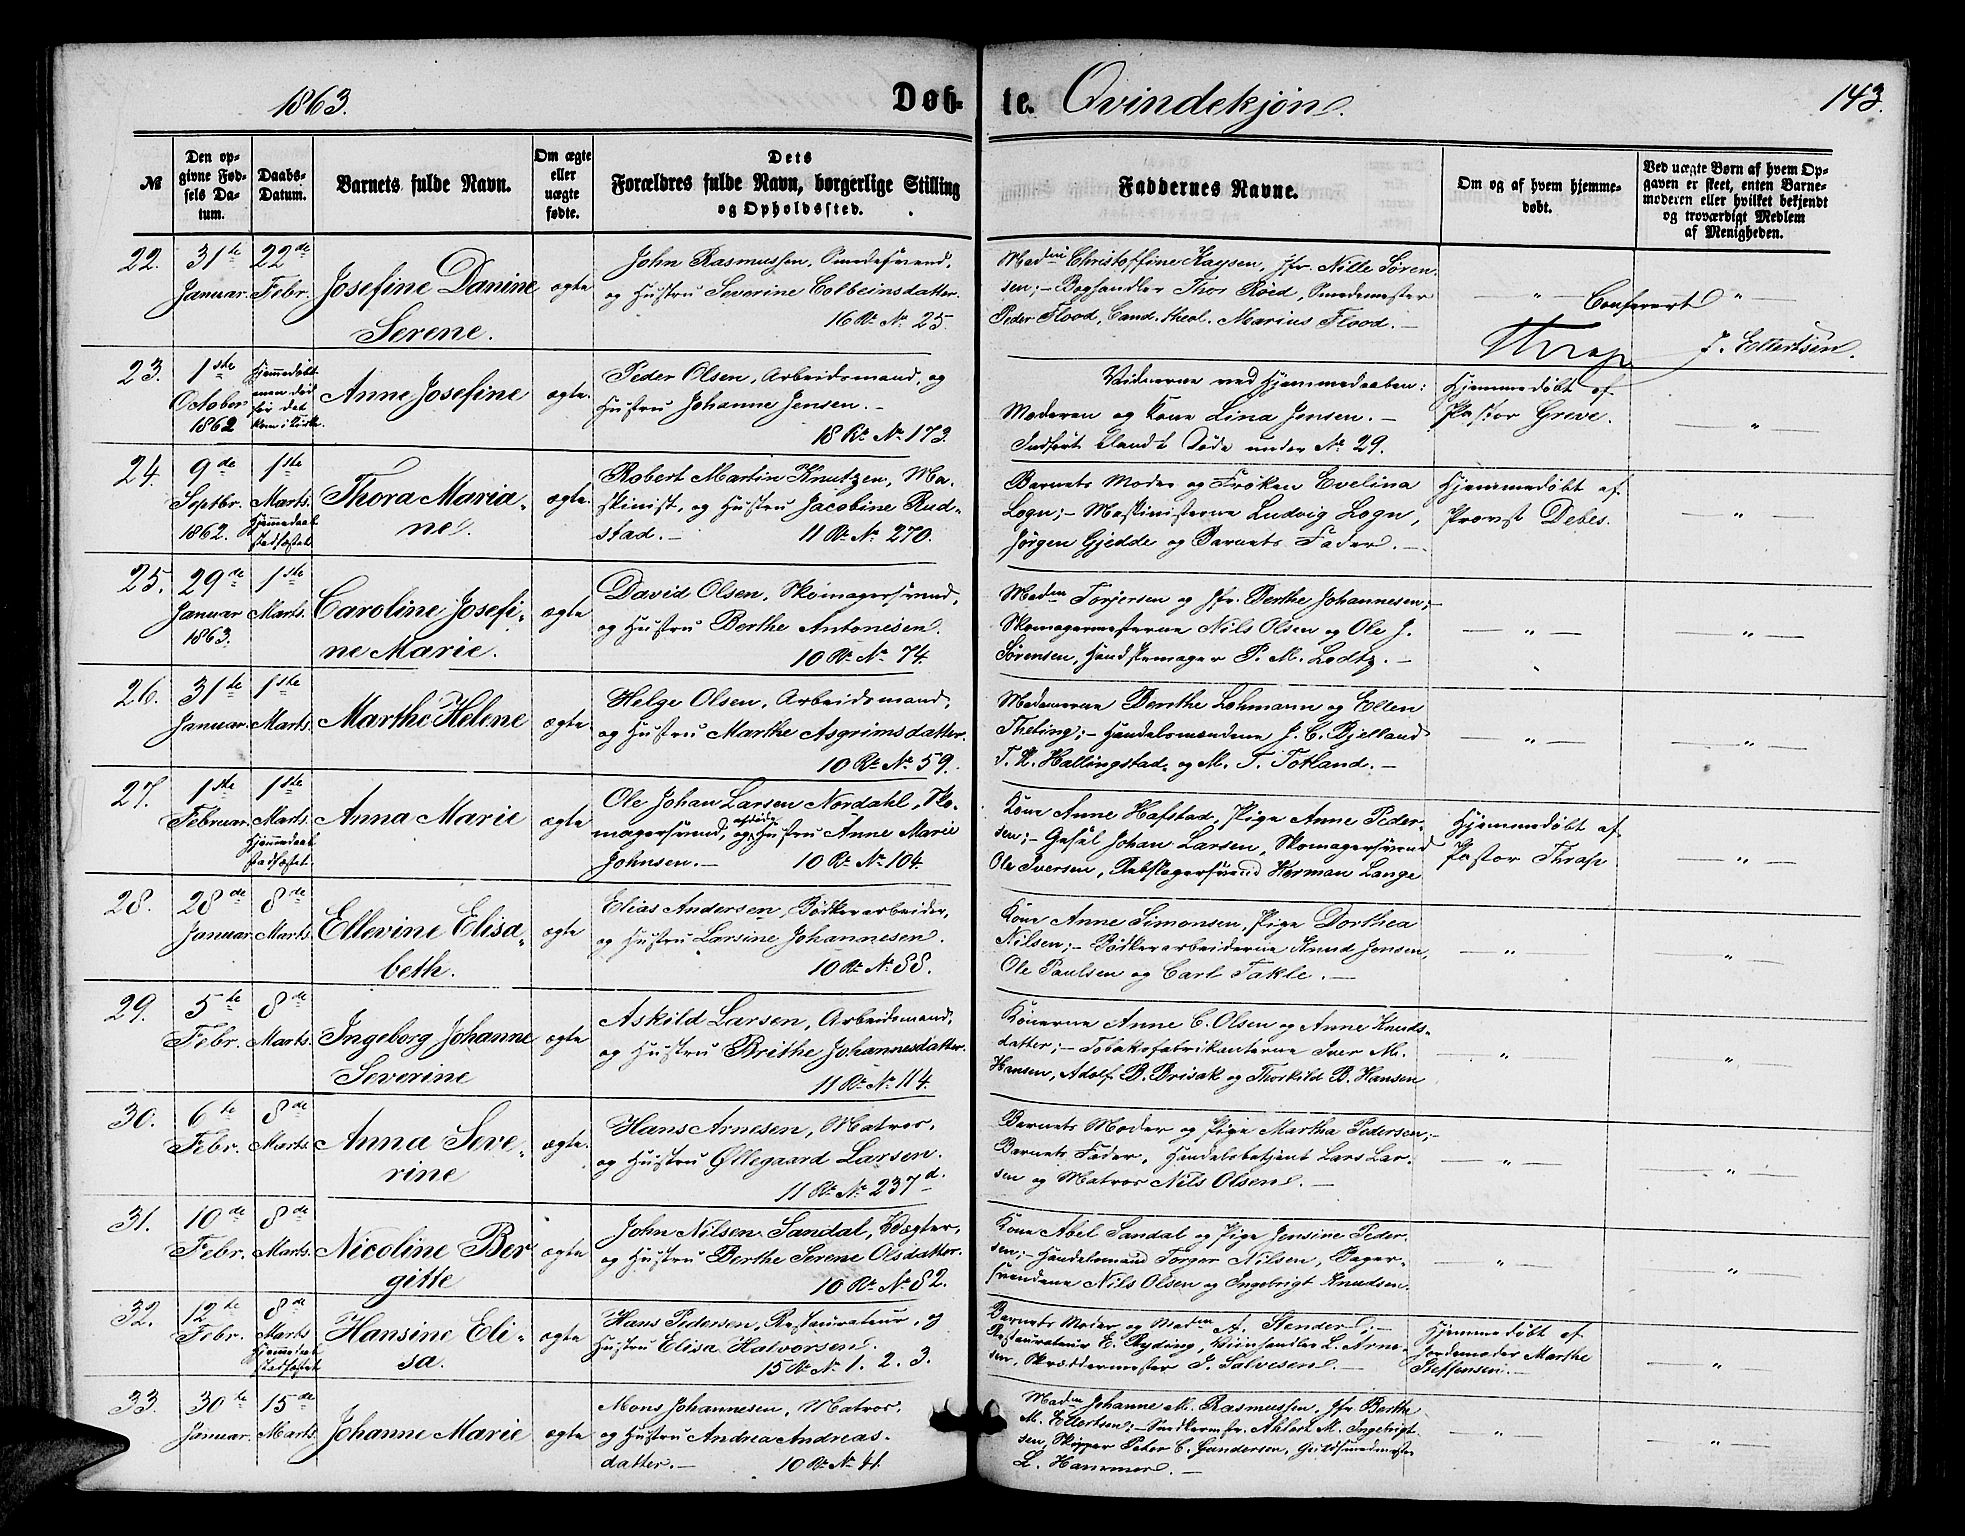 1863.
Døb-
te. Qvindekjøn.
143.
№
Den op-
givne Fød-
sels Da-
tum.
Daabs-
Datum.
Barnets fulde Navn.
Om ægte
eller
uægte
fødte.
Dets
Forældres fulde Navn, borgerlige Stilling
og Opholdssted.
Faddernes Navne.
Om og af hvem hjemme-
døbt.
Ved uægte Børn af hvem Op-
gaven er skeet, enten Barne-
moderen eller hvilket bekjendt
og troværdigt Medlem
af Menigheden.
22.
31te
Januar.
22de
Febr.
Josefine Danine
Serene.
ægte
John Rasmussen, Smedesvend,
og Hustru Severine Colbeinsdatter.
16 R№ 25.
Madm Christoffine Kaysen, Jfr. Nille Søren-
sen; - Boghandler Thor Røed, Smedemester
Peder Flood, Cand. theol. Marius Flood. -
— " —
Confereret
"
Thrap
J. Ellertsen.
23.
1ste
October
1862
Hjemmedøbt
men død
før det
kom i Kirke.
Anne Josefine
ægte.
Peder Olsen, Arbeidsmand, og
Hustru Johanne Jensen. -
18 R№ 173.
Vidnerne ved Hjemmedaaben:
Moderen og Kone Lina Jensen. -
Indført blandt Døde under № 29.
Hjemmedøbt af
Pastor Greve.
— " —
24.
9de
Septbr.
1862.
1ste
Marts.
Hjemmedaab
stadfæstet.
Thora Maria-
ne.
ægte.
Robert Martin Knutzen, Ma-
skinist, og Hustru Jacobine Rud-
stad. - 11 R№ 270.
Barnets Moder og Frøken Evelina
Logn; - Maskinisterne Ludvig Logn,
Jørgen Gjedde og Barnets Fader. -
Hjemmedøbt af
Provst Debes.
— " —
25.
29de
Januar
1863.
1ste
Marts.
Caroline Josefi-
ne Marie.
ægte
David Olsen, Skomagersvend,
og Hustru Berthe Antonisen.
10 R№ 74.
Madm Torjersen og Jfr. Berthe Johannesen; -
Skomagermesterne Nils Olsen og Ole J.
Sørensen, Handskemager P. M. Lodtz. -
— " —
— " —
26.
31te
Januar.
1ste
Marts.
Marthe Helene
ægte.
Helge Olsen, Arbeidsmand,
og Hustru Marthe Asgrimsdatter.
10 R№ 59.
Madamerne Dorthe Lohmann og Ellen
Theting; - Handelsmændene J. C. Bjelland
T. K. Hallingstad og M. T. Totland. -
— " —
— " —
27.
1ste
Februar.
1ste
Marts.
Hjemmedaab
stadfæstet.
Anna Marie
ægte
Ole Johan Larsen Nordahl, Sko-
magersvend, og afdøde Hustru Anne Marie
Johnsen. - 10 R№ 104.
Kone Anne Hafstad, Pige Anne Peder-
sen; - Gesel Johan Larsen, Skomagersvend
Ole Iversen, Rebslagersvend Herman Lange
Hjemmedøbt af
Pastor Thrap
— " —
28.
28de
Januar.
8de
Marts.
Ellevine Elisa-
beth.
ægte
Elias Andersen, Bødkerarbeider,
og Hustru Larsine Johannesen.
10 R№ 88.
Kone Anne Simonsen, Pige Dorthea
Nilsen; - Bødkerarbeiderne Knud Jensen,
Ole Paulsen og Carl Takle. -
— " —
— " —
29.
5te
Febr.
8de
Marts.
Ingeborg Johanne
Severine
ægte
Askild Larsen, Arbeidsmand,
og Hustru Brithe Johannesdatter.
11 R№ 114.
Konerne Anne C. Olsen og Anne Knuds-
datter; - Tobaksfabrikanterne Iver M.
Hansen, Adolf B. Brisak og Thorkild B. Hansen
— " —
— " —
30.
6te
Febr.
8de
Marts.
Anna Seve-
rine
ægte.
Hans Arnesen, Matros,
og Hustru Øllegaard Larsen.
11 R№ 237d.
Barnets Moder og Pige Martha Pedersen; -
Barnets Fader, Handelsbetjent Lars Lar-
sen og Matros Nils Olsen. -
— " —
— " —
31.
10de
Febr.
8de
Marts.
Nicoline Ber-
gitte
ægte
John Nilsen Sandal, Vægter,
og Hustru Berthe Serene Olsdatter.
10 R№ 82.
Kone Abel Sandal og Pige Jensine Peder-
sen; - Handelsmand Torger Nilsen, Bager-
svendene Nils Olsen og Ingebrigt Knudsen.
— " —
— " —
32.
12te
Febr.
8de
Marts
Hjemmedaab
stadfæstet
Hansine Eli-
sa.
ægte
Hans Pedersen, Restaurateur, og
Hustru Elisa Halvorsen.
15 R№ 1. 2. 3.
Barnets Moder og Madm A. Stender; -
Restaurateur E. Ryding, Viinhandler L. Arne-
sen, Skræddermester J. Salvesen. -
Hjemmedøbt af
Jordemoder Marthe
Steffensen. -
— " —
33.
30te
Januar.
15de
Marts.
Johanne Marie
ægte
Mons Johannesen, Matros.
og Hustru Andrea Andreas-
datter. - 10 R№ 41.
Madm Johanne M. Rasmussen, Jfr. Berthe
M. Ellertsen; - Snedkermstr. Ahlert M. Ingebrigt-
sen, Skipper Peter C. Gundersen, Guldsmedmester
L. Hammer. -
— " —
— " —